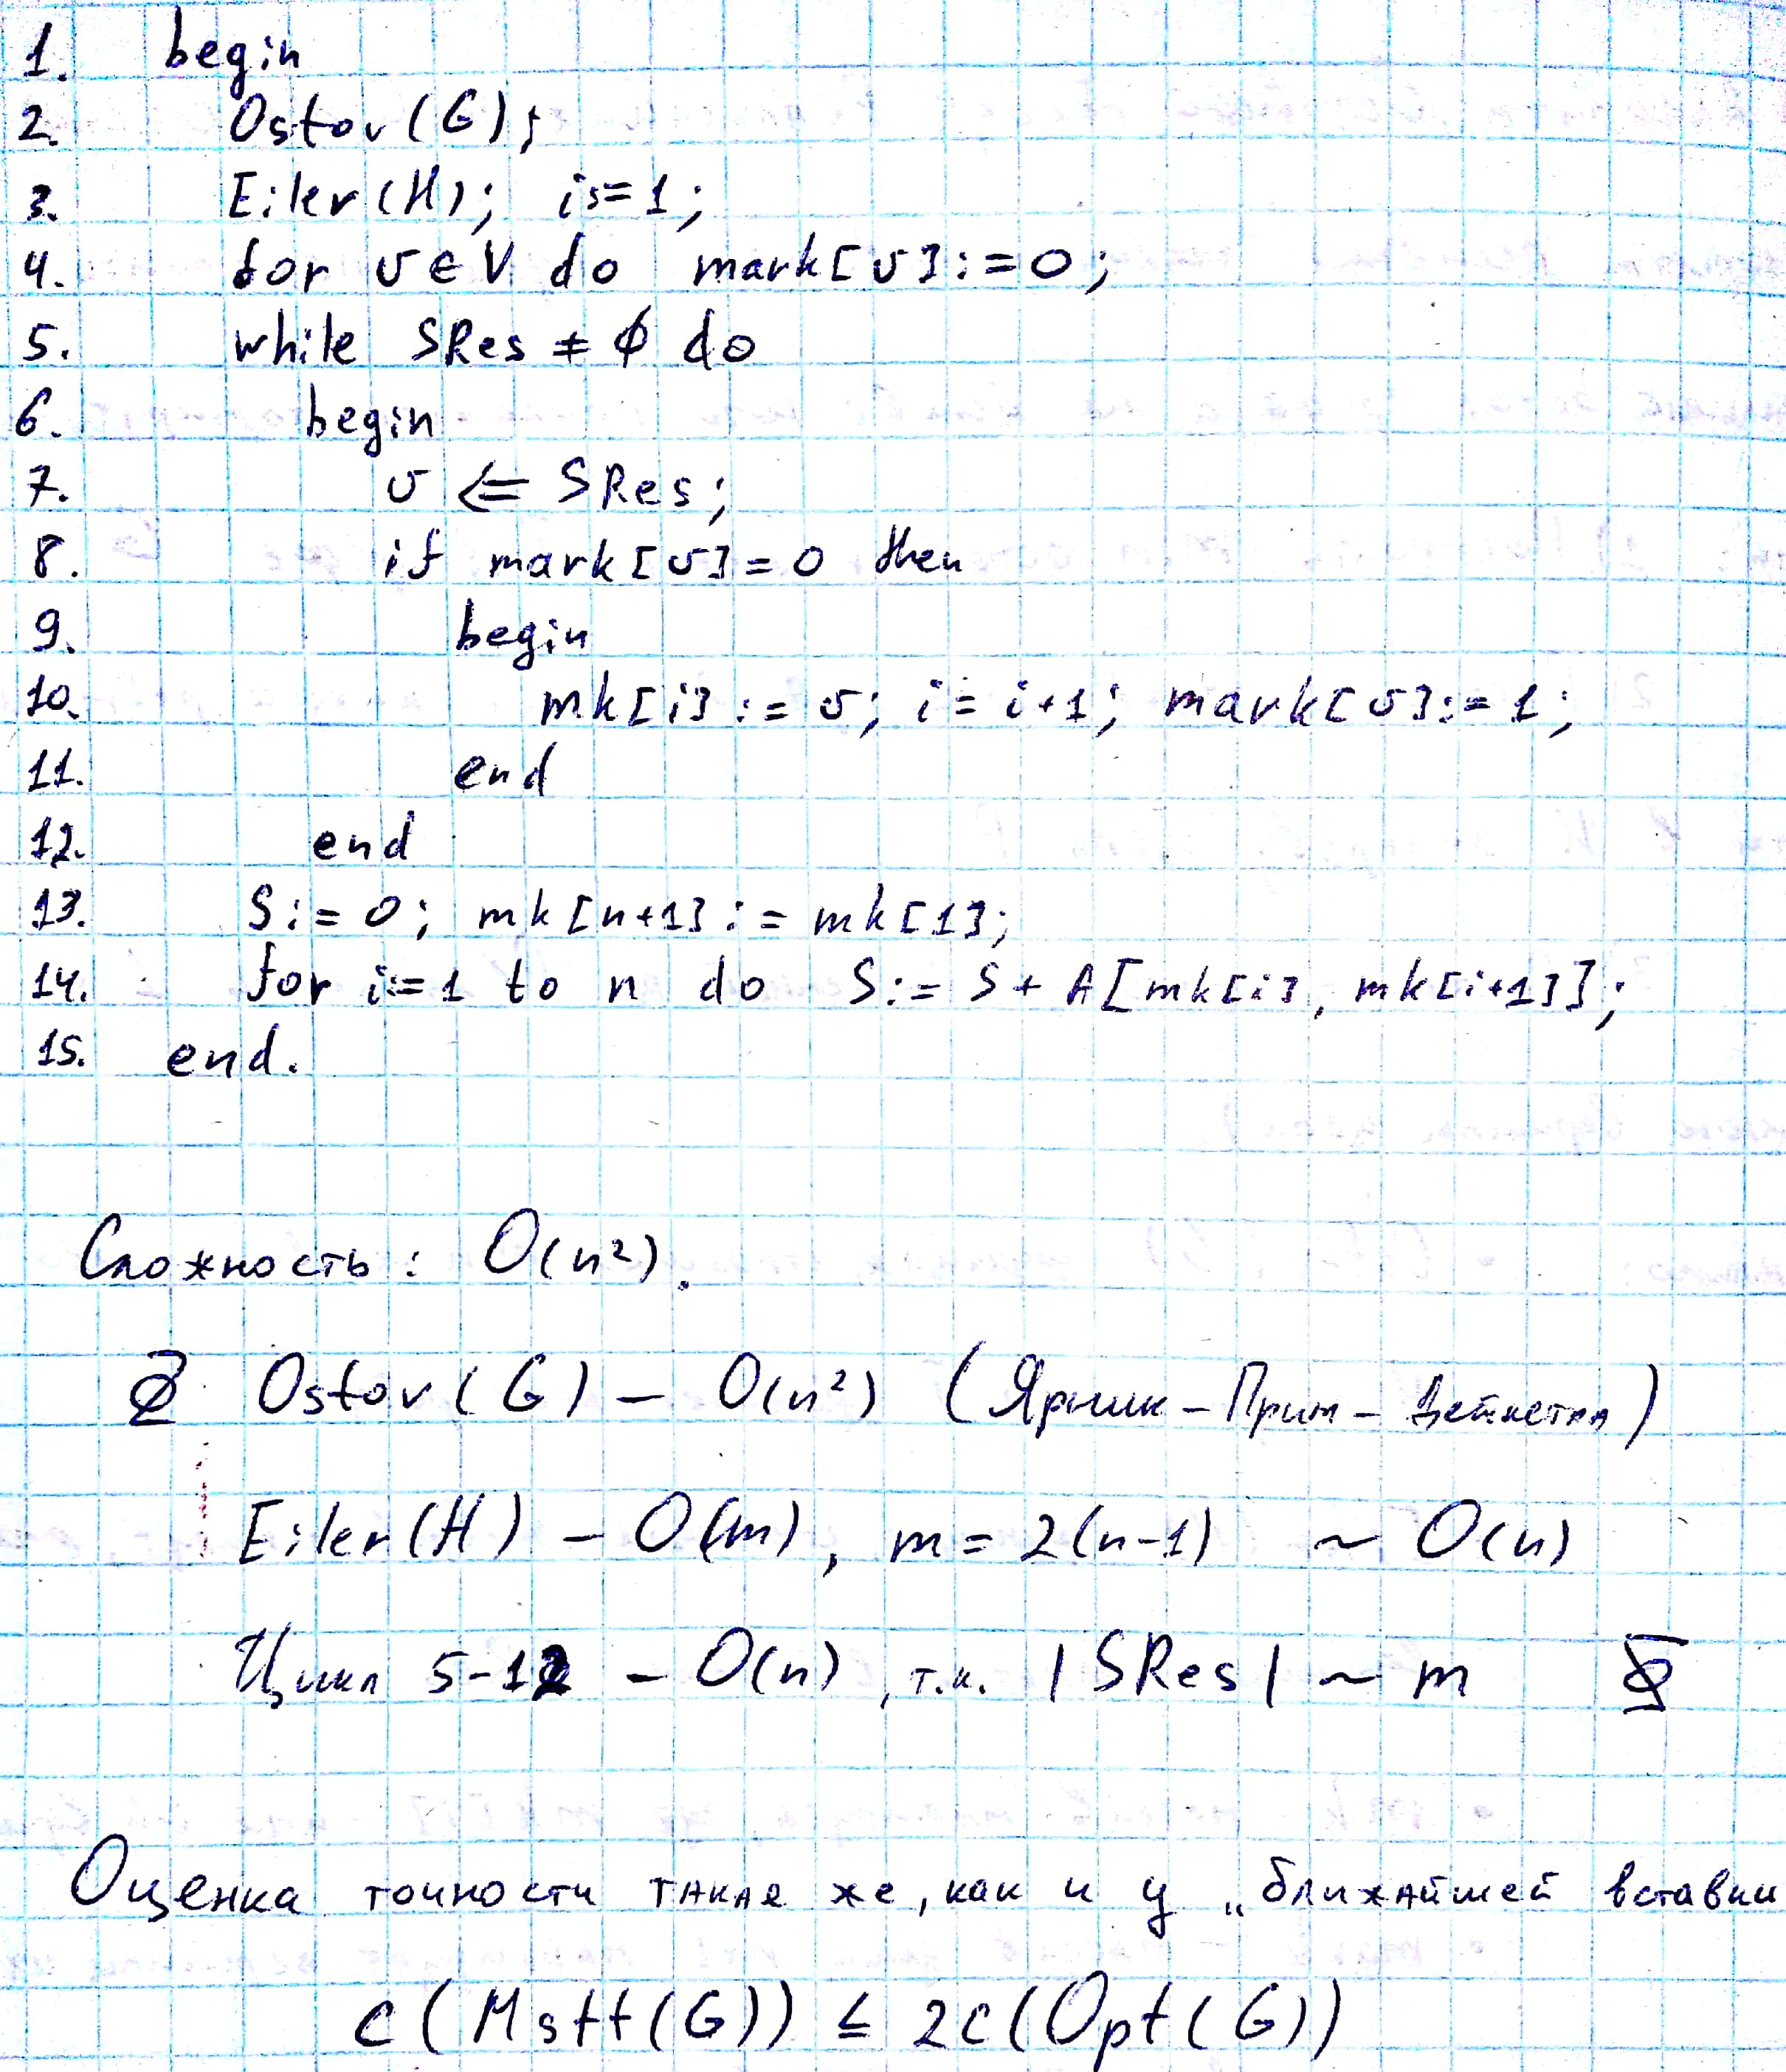 1. begin
2. Ostov(G);
3. Eiler(H); i:=1;
4. for v∈V do mark[v]:=0;
5. while SRes ≠ ∅ do
6. begin
7. v ⇐ SRes;
8. if mark[v]=0 then
9. begin
10. mk[i]:=v; i=i+1; mark[v]:=1;
11. end
12. end
13. S:=0; mk[n+1]:=mk[1];
14. for i:=1 to n do S:=S+A[mk[i], mk[i+1]];
15. end.
Сложность: O(n²).
Ostov(G) – O(n²) (Ярник – Прим – Дейкстра)
Eiler(H) – O(m), m = 2(n-1) ~ O(n)
Цикл 5-12 – O(n), т.к. |SRes| ~ m
Оценка точности такая же, как и у „ближайшей вставки
c(Mstt(G)) ≤ 2c(Opt(G))